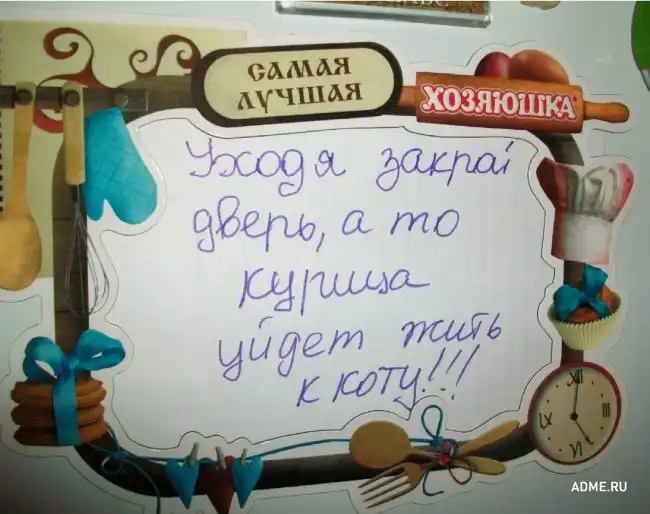 САМАЯ
ЛУЧШАЯ
ХОЗЯЮШКА
Уходя закрой
дверь, а то
курица
уйдет жить
к коту!!!
XII
III
VI
IX
ADME.RU